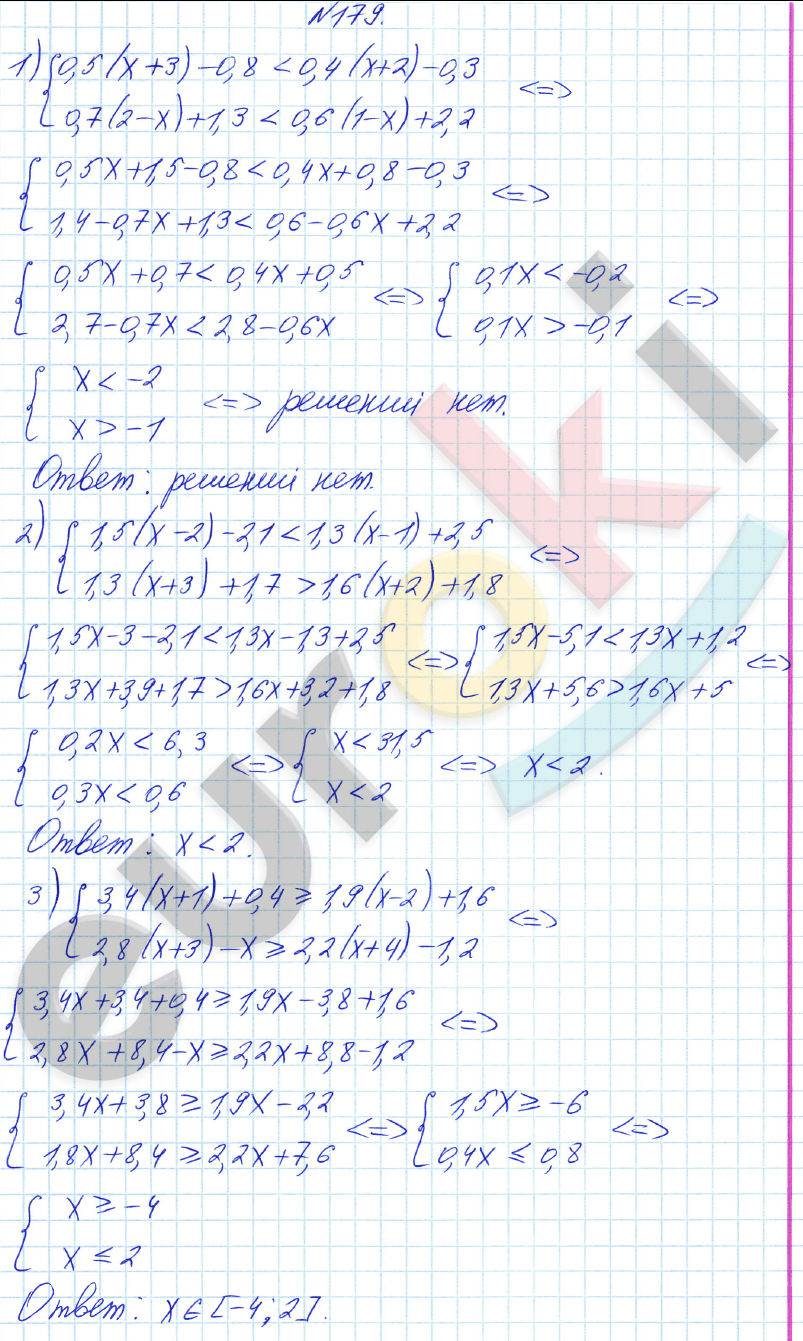 №179.
1) { 0,5(x+3)-0,8<0,4(x+2)-0,3 <=>
0,7(2-x)+1,3<0,6(1-x)+2,2
{ 0,5x+1,5-0,8<0,4x+0,8-0,3 <=>
1,4-0,7x+1,3<0,6-0,6x+2,2
{ 0,5x+0,7<0,4x+0,5 <=> { 0,1x<-0,2 <=>
2,7-0,7x<2,8-0,6x 0,1x>-0,1
{ x<-2 <=> решений нет.
x>-1
Ответ: решений нет.
2) { 1,5(x-2)-2,1<1,3(x-1)+2,5 <=>
1,3(x+3)+1,7>1,6(x+2)+1,8
{ 1,5x-3-2,1<1,3x-1,3+2,5 <=> { 1,5x-5,1<1,3x+1,2 <=>
1,3x+3,9+1,7>1,6x+3,2+1,8 1,3x+5,6>1,6x+5
{ 0,2x<6,3 <=> { x<31,5 <=> x<2.
0,3x<0,6 x<2
Ответ: x<2.
3) { 3,4(x+1)+0,4≥1,9(x-2)+1,6 <=>
2,8(x+3)-x≥2,2(x+4)-1,2
{ 3,4x+3,4+0,4≥1,9x-3,8+1,6 <=>
2,8x+8,4-x≥2,2x+8,8-1,2
{ 3,4x+3,8≥1,9x-2,2 <=> { 1,5x≥-6 <=>
1,8x+8,4≥2,2x+7,6 0,4x≤0,8
{ x≥-4
x≤2
Ответ: x∈[-4;2].
euroki